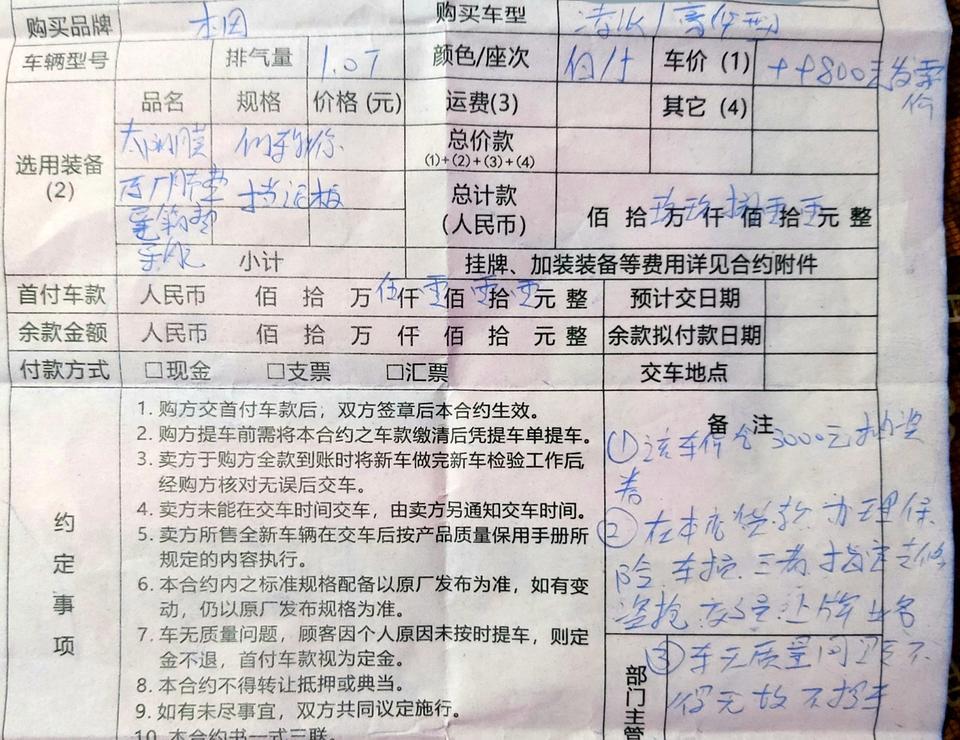 购买品牌 本田 购买车型
车辆型号 排气量 1.0T 颜色/座次 车价 (1)
品名 规格 价格 (元) 运费(3) 其它 (4)
选用装备
(2)
太阳膜
总价款
(1)+(2)+(3)+(4)
挡泥板
总计款
(人民币) 佰 拾 万 仟 佰 拾 元 整
小计 挂牌、加装装备等费用详见合约附件
首付车款 人民币 佰 拾 万 伍仟 零佰 零拾 零元 整 预计交日期
余款金额 人民币 佰 拾 万 仟 佰 拾 元 整 余款拟付款日期
付款方式 □现金 □支票 □汇票 交车地点
约定事项
1. 购方交首付车款后，双方签章后本合约生效。
2. 购方提车前需将本合约之车款缴清后凭提车单提车。
3. 卖方于购方全款到账时将新车做完新车检验工作后,
经购方核对无误后交车。
4. 卖方未能在交车时间交车，由卖方另通知交车时间。
5. 卖方所售全新车辆在交车后按产品质量保用手册所
规定的内容执行。
6. 本合约内之标准规格配备以原厂发布为准，如有变
动，仍以原厂发布规格为准。
7. 车无质量问题，顾客因个人原因未按时提车，则定
金不退，首付车款视为定金。
8. 本合约不得转让抵押或典当。
9. 如有未尽事宜，双方共同议定施行。
10. 本合约书一式三联。
备 注
① 该车价含3000元抽奖
券
② 在本店贷款 办理保
险 车损 三者 指定
盗抢 上牌
③ 车无质量问题不
得无故不提车
部门主管